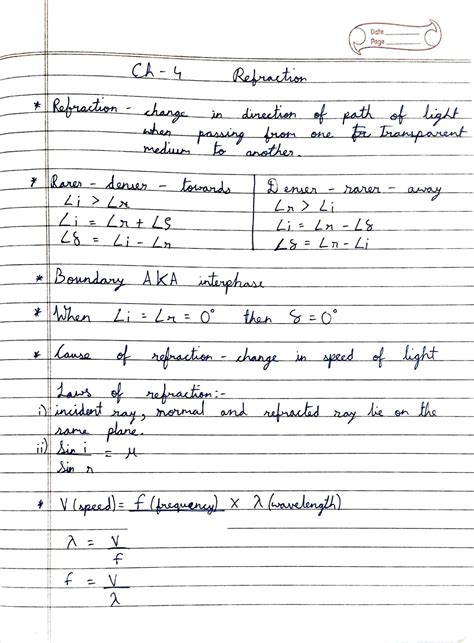 Date
Page
Ch - 4 Refraction
* Refraction - change in direction of path of light
when passing from one transparent
medium to another.
* Rarer - denser - towards
∠i > ∠r
∠i = ∠r + ∠δ
∠δ = ∠i - ∠r
Denser - rarer - away
∠r > ∠i
∠i = ∠r - ∠δ
∠δ = ∠r - ∠i
* Boundary AKA interphase
* When ∠i = ∠r = 0° then δ = 0°
* Cause of refraction - change in speed of light
Laws of refraction:-
i) incident ray, normal and refracted ray lie on the
same plane.
ii) Sin i / Sin r = μ
* V (speed) = f (frequency) × λ (wavelength)
λ = V / f
f = V / λ